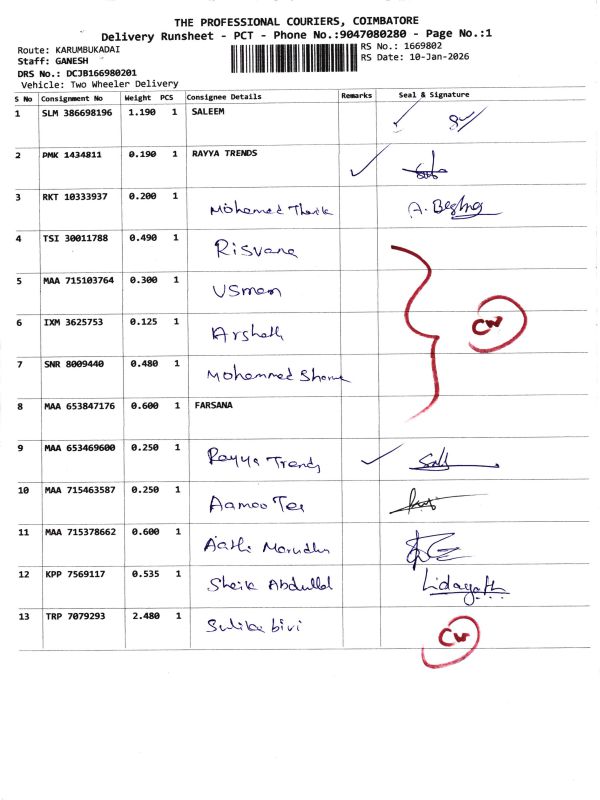 THE PROFESSIONAL COURIERS, COIMBATORE
Delivery Runsheet - PCT - Phone No.:9047080280 - Page No.:1
Route: KARUMBUKADAI
RS No.: 1669802
Staff: GANESH
RS Date: 10-Jan-2026
DRS No.: DCJB166980201
Vehicle: Two Wheeler Delivery
S No Consignment No Weight PCS Consignee Details Remarks Seal & Signature
1 SLM 386698196 1.190 1 SALEEM
2 PMK 1434811 0.190 1 RAYYA TRENDS
3 RKT 10333937 0.200 1 Mohamed A.
4 TSI 30011788 0.490 1 Risvana
5 MAA 715103764 0.300 1 Usman
6 IXM 3625753 0.125 1 Arshath CW
7 SNR 8009440 0.480 1 Mohammed
8 MAA 653847176 0.600 1 FARSANA
9 MAA 653469600 0.250 1 Rayya Trends
10 MAA 715463587 0.250 1 Aamoo Tex
11 MAA 715378662 0.600 1 Aathi Marudhu
12 KPP 7569117 0.535 1 Sheik Abdullah Lidayath
13 TRP 7079293 2.480 1 Sulika bivi CW